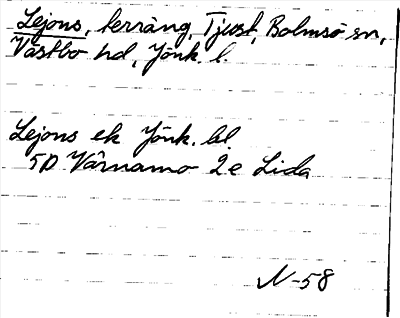 Lejons, terräng, Tjust, Bolmsö sn,
Västbo hd, Jönk. l.
Lejons ek Jönk. bl.
5D Värnamo 2e Lida
N-58